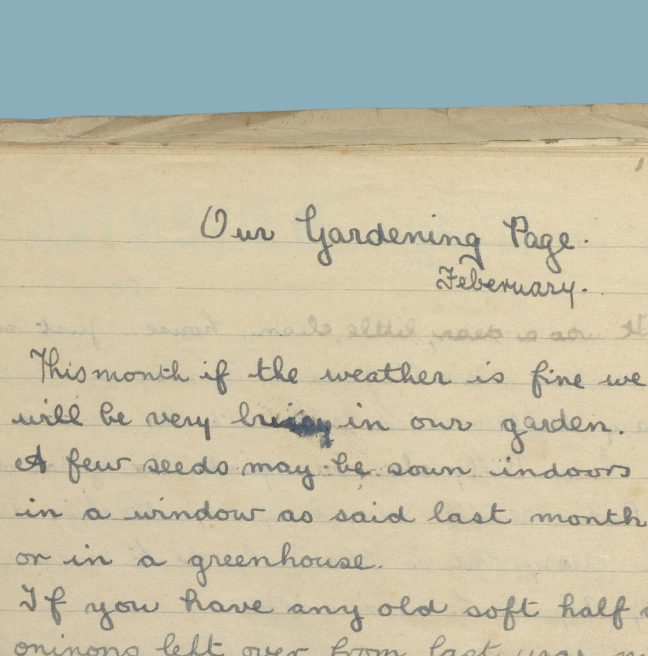 Our Gardening Page.
Feberuary.
This month if the weather is fine we
will be very in our garden.
A few seeds may be sown indoors
in a window as said last month
or in a greenhouse.
If you have any old soft half
oninons left over from last year